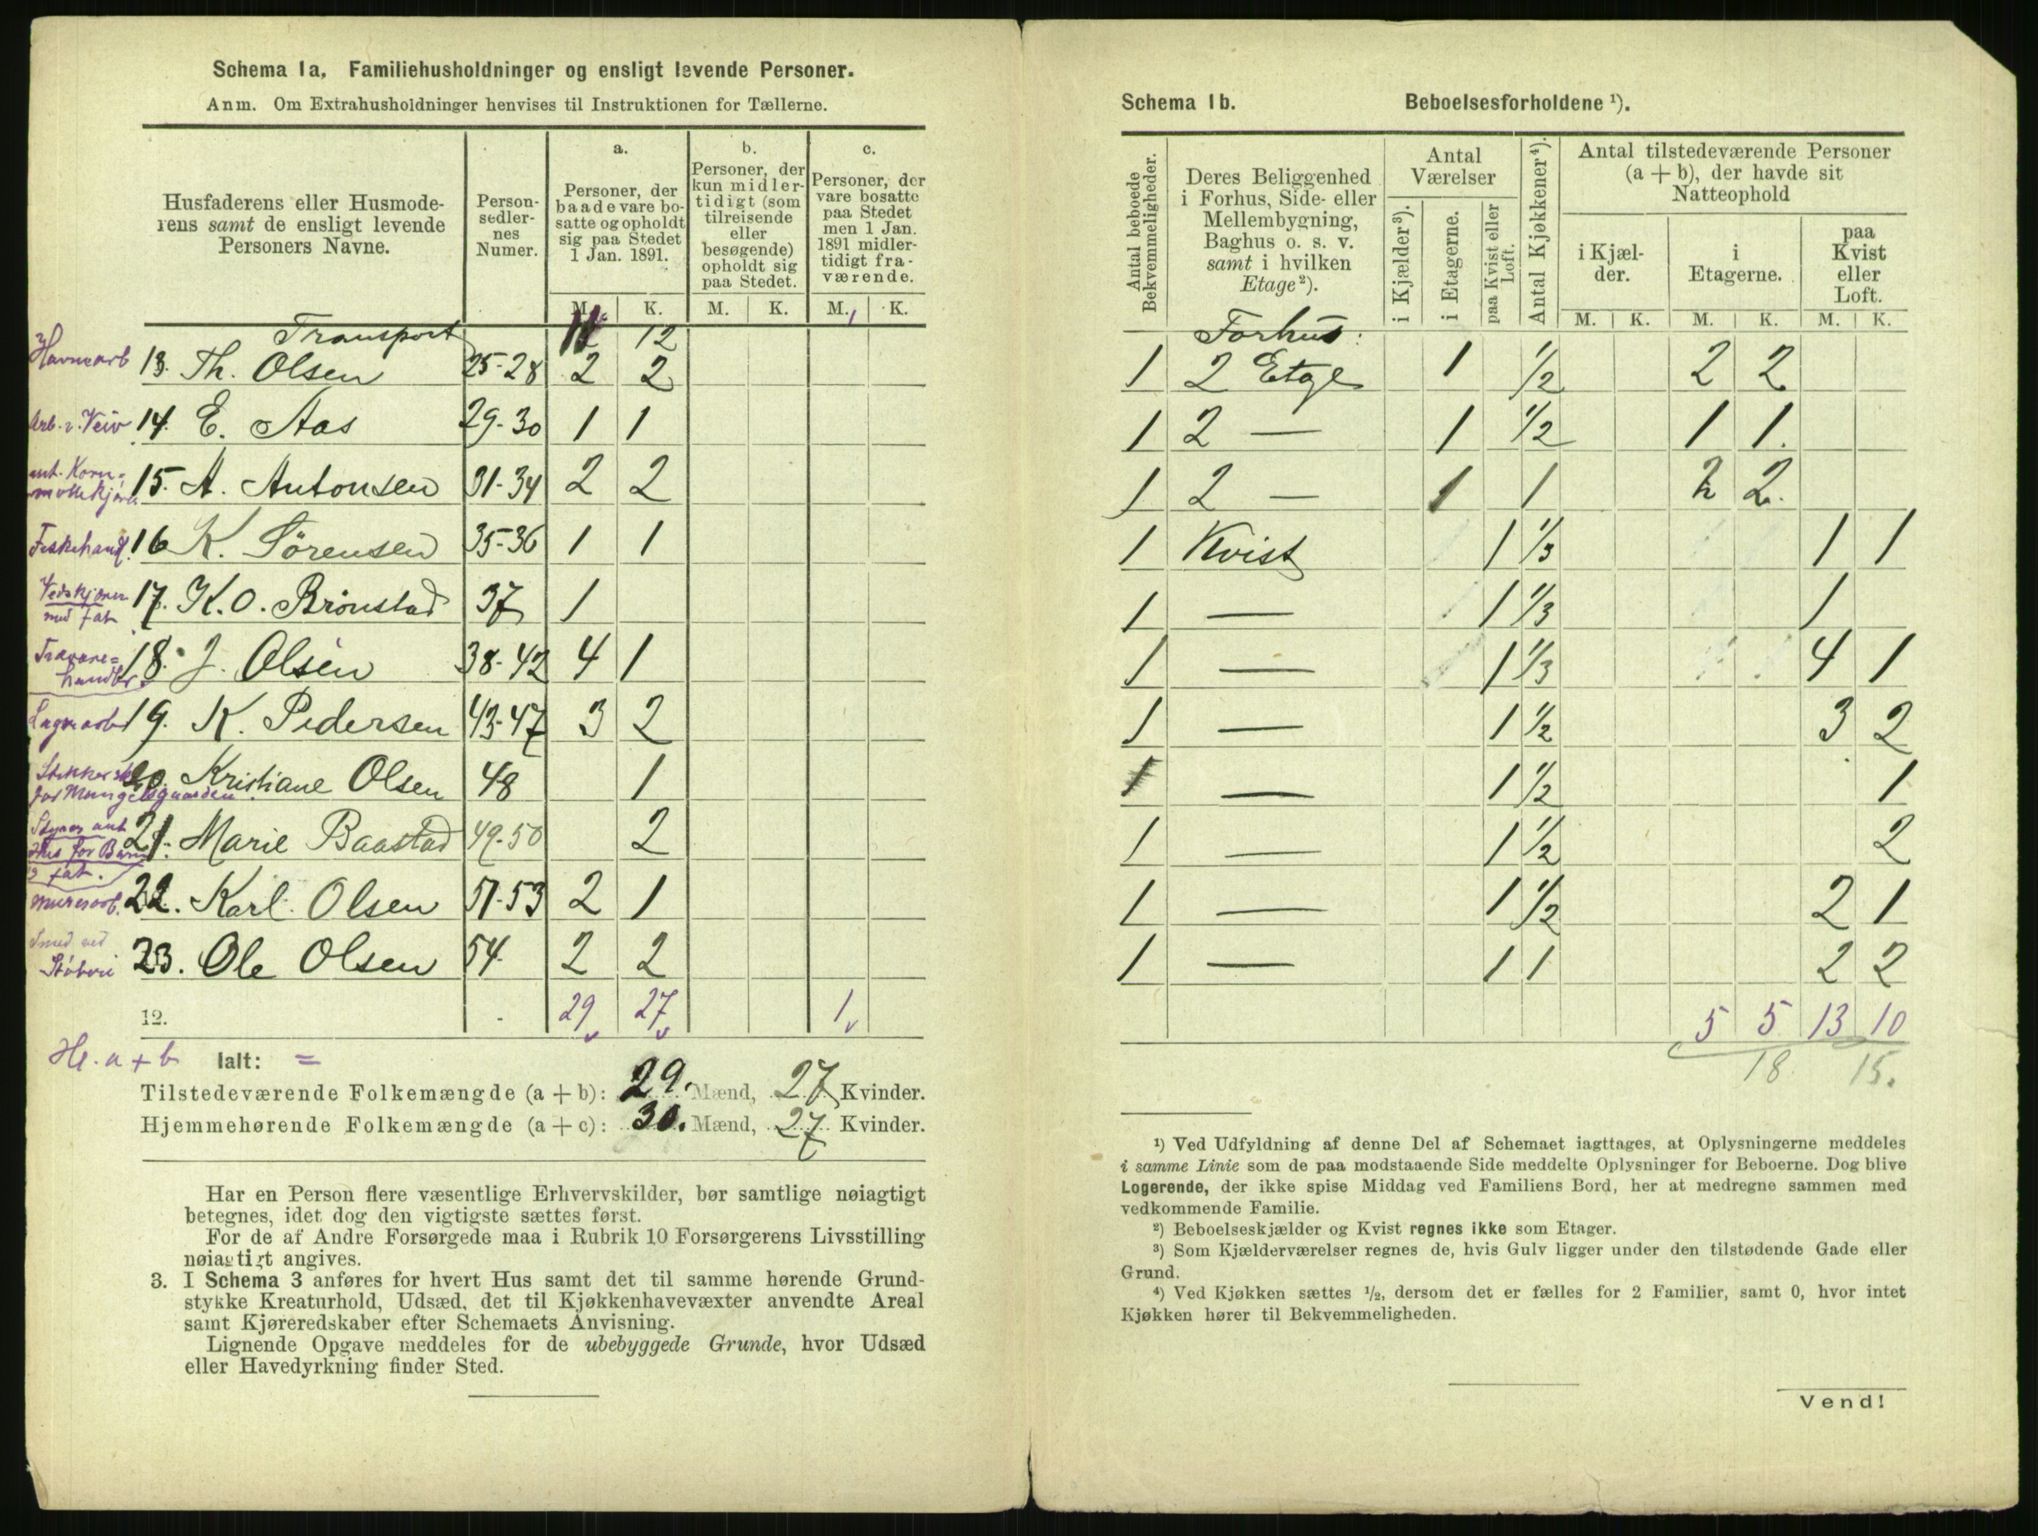 Schema 1a. Familiehusholdninger og ensligt levende Personer.
Anm. Om Extrahusholdninger henvises til Instruktionen for Tællerne.
Husfaderens eller Husmoderens samt de ensligt levende Personers Navne.
Personsedlernes Numer.
a.
Personer, der baade vare bosatte og opholdt sig paa Stedet 1 Jan. 1891.
b.
Personer, der kun midlertidigt (som tilreisende eller besøgende) opholdt sig paa Stedet.
c.
Personer, der vare bosatte paa Stedet men 1 Jan. 1891 midlertidigt fraværende.
M. K. M. K. M. K.
Transport 12 1
Havnearb 13. Th. Olsen 25-28 2 2
Arb. v. Veiv 14. E. Aas 29-30 1 1
15. A. Antonsen 31-34 2 2
Fiskehandl. 16 K. Sörensen 35-36 1 1
Vedskjærer med fat 17. K. O. Brönstad 37 1
18. J. Olsen 38-42 4 1
Lagerarb 19. K. Pedersen 43-47 3 2
20. Kristiane Olsen 48 1
21. Marie Baastad 49-50 2
Murerarb. 22. Karl Olsen 51-53 2 1
Smed ved Støberi 23. Ole Olsen 54. 2 2
12. 29 27 1
Hl. a + b Ialt: =
Tilstedeværende Folkemængde (a + b): 29. Mænd, 27 Kvinder.
Hjemmehørende Folkemængde (a + c): 30. Mænd, 27 Kvinder.
Har en Person flere væsentlige Erhvervskilder, bør samtlige nøiagtigt
betegnes, idet dog den vigtigste sættes først.
For de af Andre Forsørgede maa i Rubrik 10 Forsørgerens Livsstilling
nøiagtigt angives.
3. I Schema 3 anføres for hvert Hus samt det til samme hørende Grund-
stykke Kreaturhold, Udsæd, det til Kjøkkenhavevæxter anvendte Areal
samt Kjøreredskaber efter Schemaets Anvisning.
Lignende Opgave meddeles for de ubebyggede Grunde, hvor Udsæd
eller Havedyrkning finder Sted.
Schema 1b. Beboelsesforholdene ¹).
Antal beboede Bekvemmeligheder.
Deres Beliggenhed i Forhus, Side- eller Mellembygning, Baghus o. s. v. samt i hvilken Etage²).
Antal Værelser
i Kjælder³).
i Etagerne.
paa Kvist eller Loft.
Antal Kjøkkener⁴).
Antal tilstedeværende Personer (a + b), der havde sit Natteophold
i Kjælder.
i Etagerne.
paa Kvist eller Loft.
M. K. M. K. M. K.
Forhus:
1 2 Etage 1 1/2 2 2
1 2 — 1 1/2 1 1.
1 2 — 1 1 2 2.
1 Kvist 1 1/3 1 1
1 — 1 1/3 1
1 — 1 1/3 4 1
1 — 1 1/2 3 2
1 — 1 1/2 1
1 — 1 1/2 2
1 — 1 1/2 2 1
1 — 1 1 2 2
5 5 13 10
18 15.
¹) Ved Udfyldning af denne Del af Schemaet iagttages, at Oplysningerne meddeles
i samme Linie som de paa modstaaende Side meddelte Oplysninger for Beboerne. Dog blive
Logerende, der ikke spise Middag ved Familiens Bord, her at medregne sammen med
vedkommende Familie.
²) Beboelseskjælder og Kvist regnes ikke som Etager.
³) Som Kjælderværelser regnes de, hvis Gulv ligger under den tilstødende Gade eller
Grund.
⁴) Ved Kjøkken sættes ¹/₂, dersom det er fælles for 2 Familier, samt 0, hvor intet
Kjøkken hører til Bekvemmeligheden.
Vend!